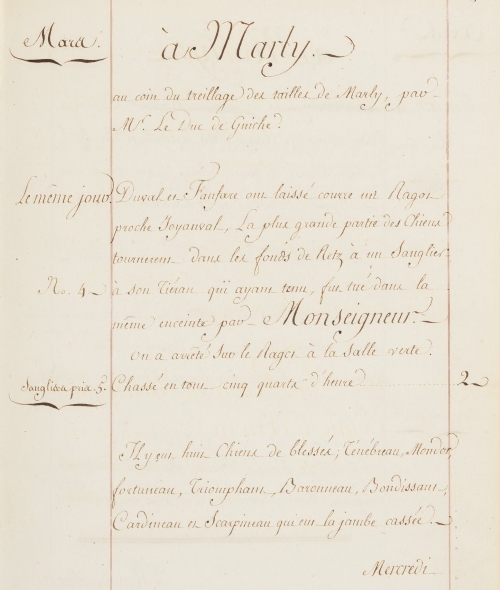 Mars.
à Marly.
au coin du treillage des tailles de Marly, par
Mr. Le Duc de Guiche.
Le même jour. Duval et Fanfare ont laissé courre un Ragot
proche Joyanval, La plus grande partie des Chiens
tournerent dans les fonds de Retz à un Sanglier
No. 4 à son Tiéran qui ayant tenu, fut tué dans la
même enceinte par Monseigneur.
On a arrêté sur le Ragot à la Salle verte.
Sangliers pris 5. Chassé en tout cinq quarts d'heure 2
Il y eut huit Chiens de blessés; Ténébreau, Mondor,
fortuneau, Triomphant, Baronneau, Bondissant,
Cardineau et Scarpineau qui eut la jambe cassée.
Mercredi